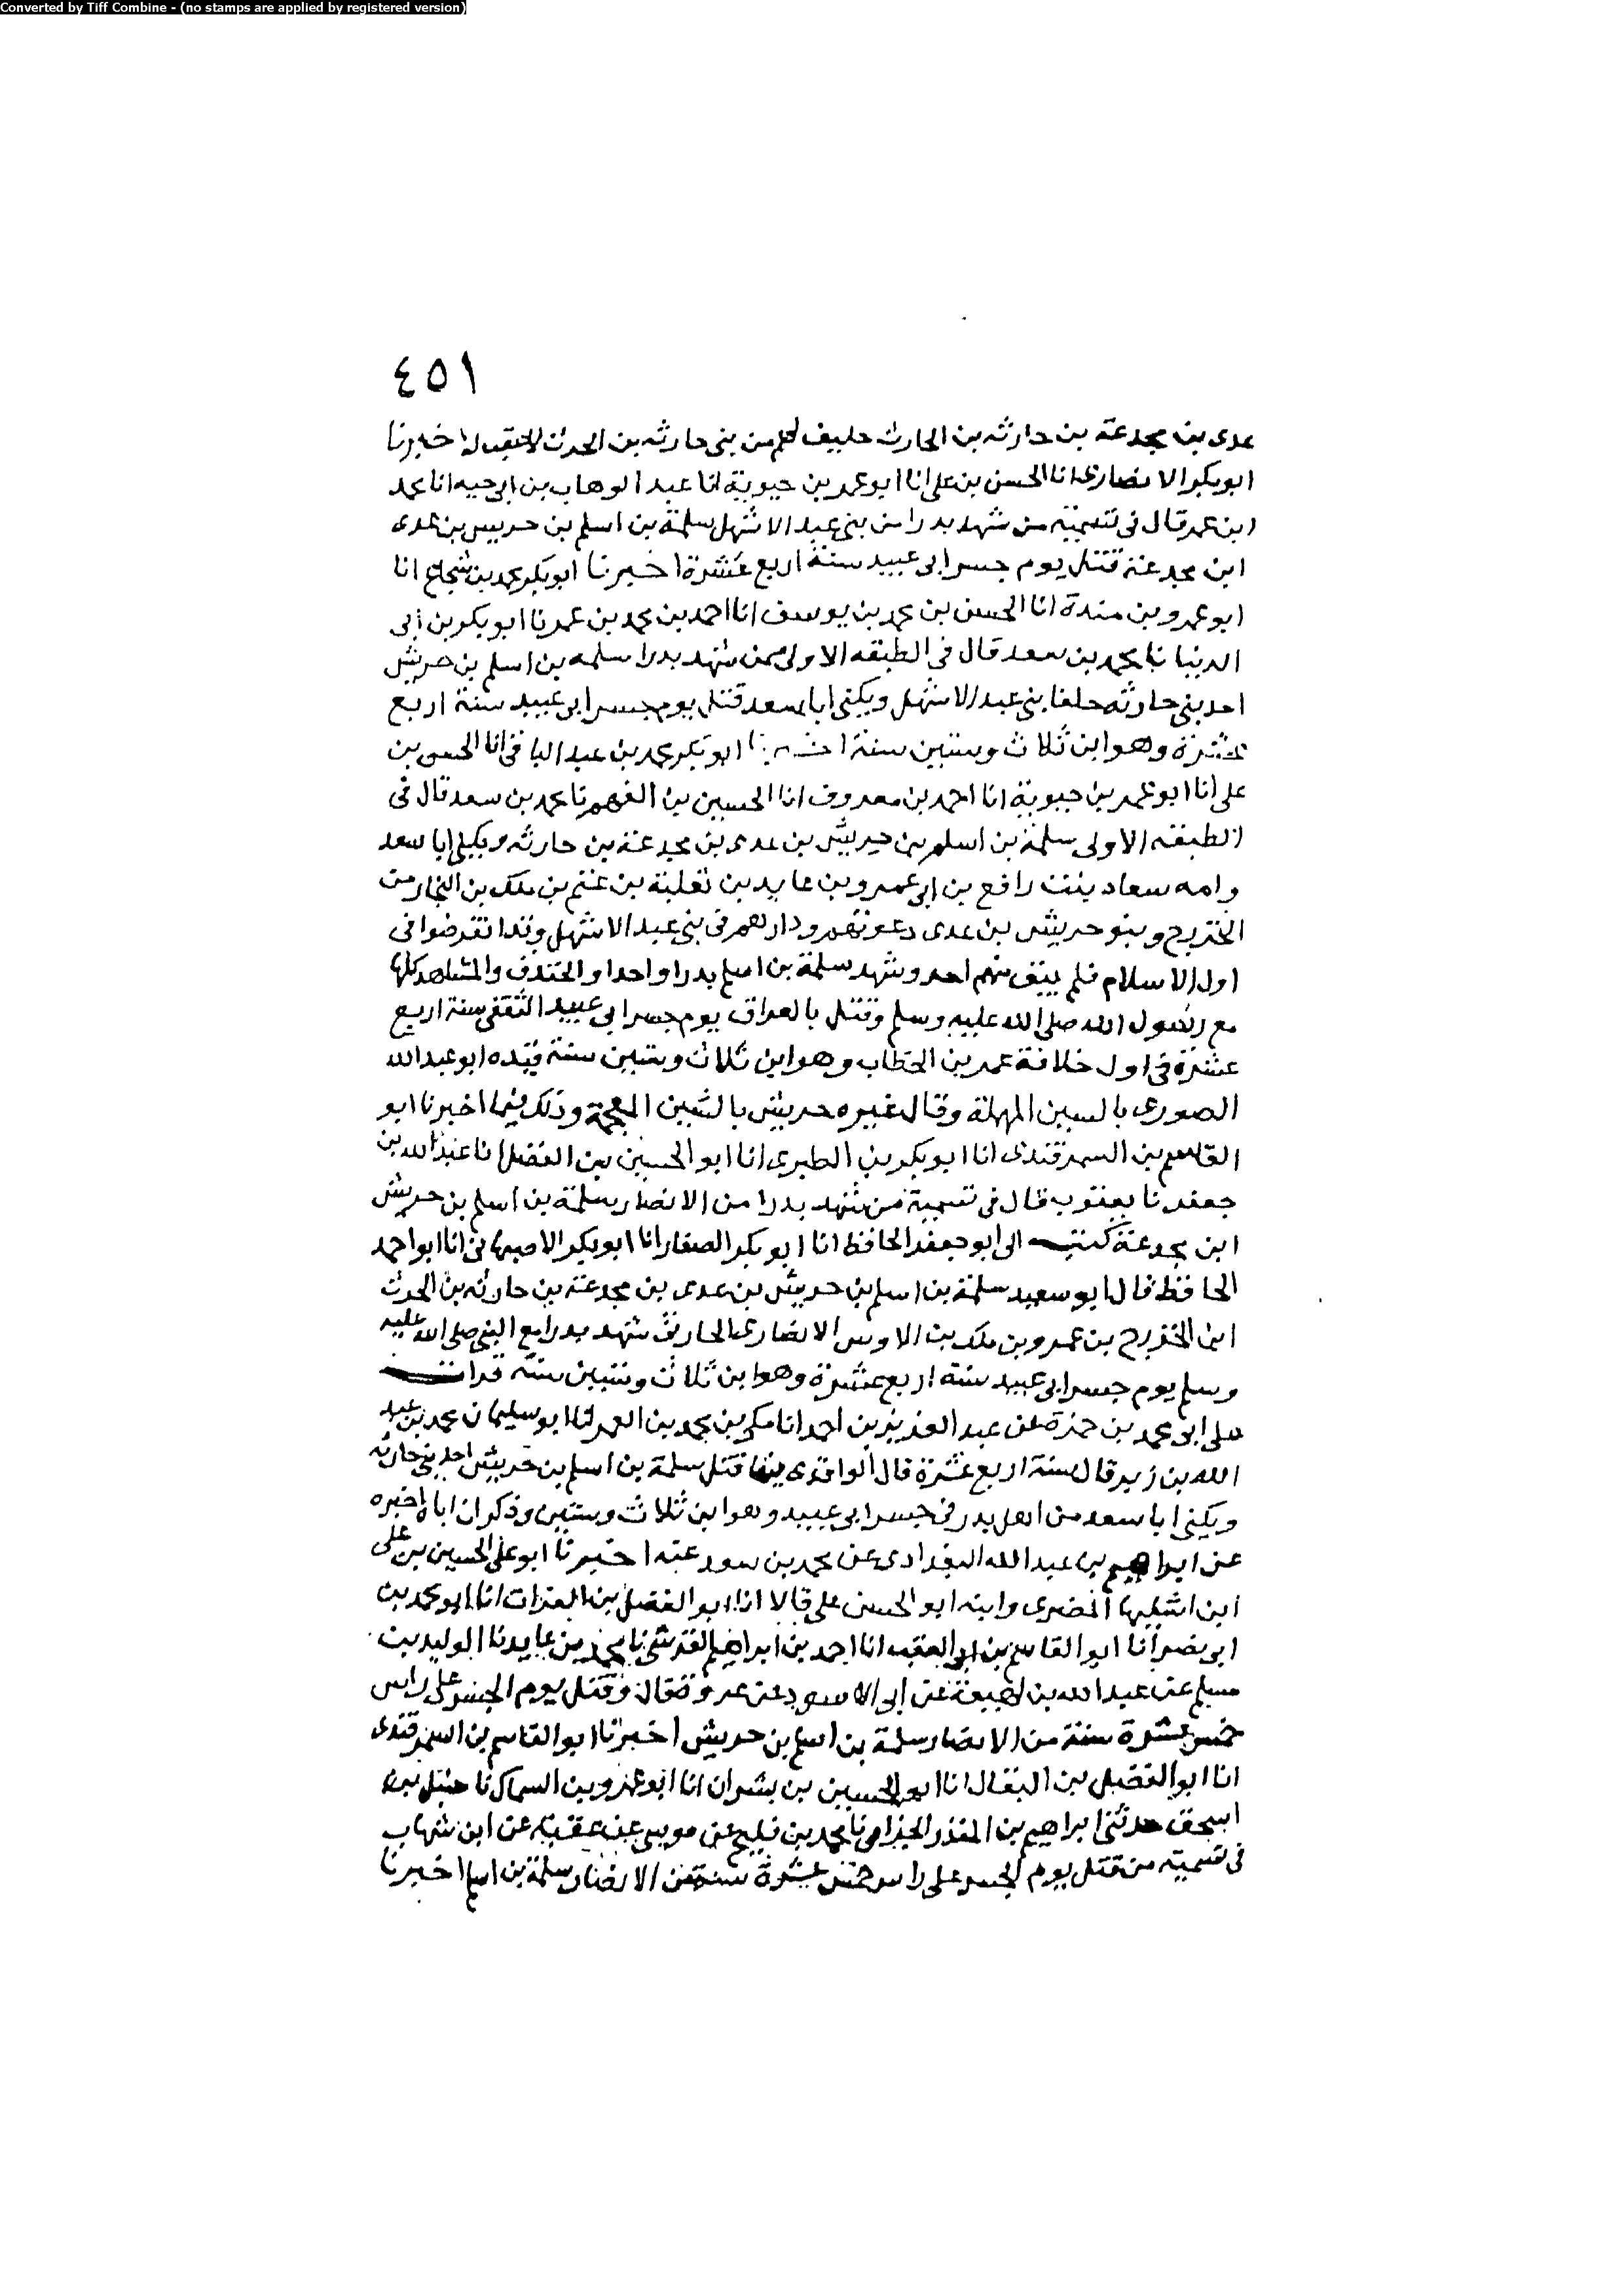 Converted by Tiff Combine - (no stamps are applied by registered version)
٤٥١
عدى بن مجدعة بن حارثه بن الحارث حليف لهم من بنى حارثه بن الحرث لا عقب له اخبرنا
ابو بكر الانصارى انا الحسن بن على انا ابو عمر بن حيوية انا عبد الوهاب بن ابى حيه انا محمد
ابن عمر قال فى تسمية من شهد بدرا من بنى عبد الاشهل سلمة بن اسلم بن حريس بن عدى
ابن مجدعة قتل يوم جسر ابى عبيد سنة اربع عشرة اخبرنا ابو بكر محمد بن شجاع انا
ابو عمرو بن مندة انا الحسن بن محمد بن يوسف انا احمد بن محمد بن عمر نا ابو بكر بن أبى
الدنيا نا محمد بن سعد قال فى الطبقه الاولى ممن شهد بدرا سلمه بن اسلم بن حريش
احد بنى حارثه حلفا بنى عبد الاشهل ويكنى ابا سعد قتل يوم جسر ابى عبيد سنة اربع
عشرة وهو ابن ثلاث وستين سنة ابو بكر محمد بن عبد الباقى انا الحسن بن
على انا ابو عمر بن حيوية انا احمد بن معروف انا الحسين بن الفهم نا محمد بن سعد قال فى
الطبقه الاولى سلمة بن اسلم بن حريش بن عدى بن مجدعة بن حارثه ويكنى ابا سعد
وامه سعاد بنت رافع بن ابى عمرو بن عايد بن ثعلبة بن غنم بن ملك بن النجار من
الخزرج وبنو حريش بن عدى دعوتهم ودارهم فى بنى عبد الاشهل وقد انقرضوا فى
اول الاسلام فلم يبق منهم احد وشهد سلمة بن اسلم بدرا واحدا والخندق والمشاهد كلها
مع رسول الله صلى الله عليه وسلم وقتل بالعراق يوم جسر ابى عبيد الثقفى سنة اربع
عشرة فى اول خلافة عمر بن الخطاب وهو ابن ثلاث وستين سنة قيده ابو عبد الله
الصورى بالسين المهملة وقال غيره حريش بالشين المعجمة وذلك فيما اخبرنا ابو
القاسم بن السمرقندى انا ابو بكر بن الطبرى انا ابو الحسين بن الفضل انا عبد الله بن
جعفر نا يعقوب قال فى تسمية من شهد بدرا من الانصار سلمة بن اسلم بن حريش
ابن مجدعة كتب الى ابو جعفر الحافظ انا ابو بكر الصفار انا ابو بكر الاصبهانى انا ابو احمد
الحافظ قال ابو سعيد سلمة بن اسلم بن حريش بن عدى بن مجدعة بن حارثه بن الحرث
ابن الخزرج بن عمرو بن ملك بن الاوس الانصارى الحارثى شهد بدرا مع النبى صلى الله عليه
وسلم يوم جسر ابى عبيد سنة اربع عشرة وهو ابن ثلاث وستين سنة قرات
على ابى محمد بن حمزة عن عبد العزيز بن احمد انا مكى بن محمد بن الغمر انا ابو سليمان محمد بن عبد
الله بن زبر قال سنة اربع عشرة قال الواقدى فيها قتل سلمة بن اسلم بن حريش احد بنى حارثه
ويكنى ابا سعد من اهل بدر فى جسر ابى عبيد وهو ابن ثلاث وستين وذكر ان اباه اخبره
عن ابراهيم بن عبد الله البغدادى عن محمد بن سعد عنه اخبرنا ابو على الحسين بن على
ابن اشليها المصرى وابنه ابو الحسن على قالا انا ابو الفضل بن الفرات انا ابو محمد بن
ابى نصر أنا ابو القاسم بن ابى العقب انا احمد بن ابراهيم القرشى نا محمد بن عايد نا الوليد بن
مسلم عن عبد الله بن لهيعة عن ابى الاسود عن عروة قال وقتل يوم الجسر على راس
خمس عشرة سنة من الانصار سلمة بن اسلم بن حريش اخبرنا ابو القاسم بن السمرقندى
انا ابو الفضل بن البقال انا ابو الحسين بن بشران انا ابو عمرو بن السماك نا حنبل بن
اسحق حدثنى ابراهيم بن المنذر الحزامى نا محمد بن فليح عن موسى بن عقبة عن ابن شهاب
فى تسمية من قتل يوم الجسر على راس خمس عشرة سنة من الانصار سلمة بن اسلم اخبرنا